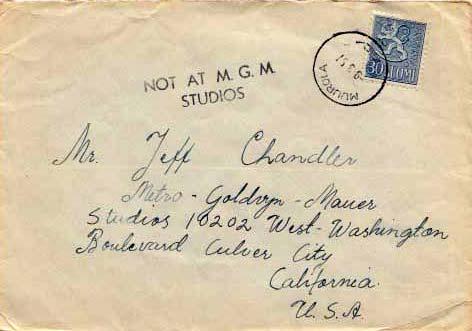 NOT AT M. G. M.
STUDIOS
MUUROLA
30
SUOMI
Mr. Jeff Chandler
Metro - Goldvyn - Mauer
Studios 10202 West-Washington
Boulevard Culver City
California.
U. S. A.